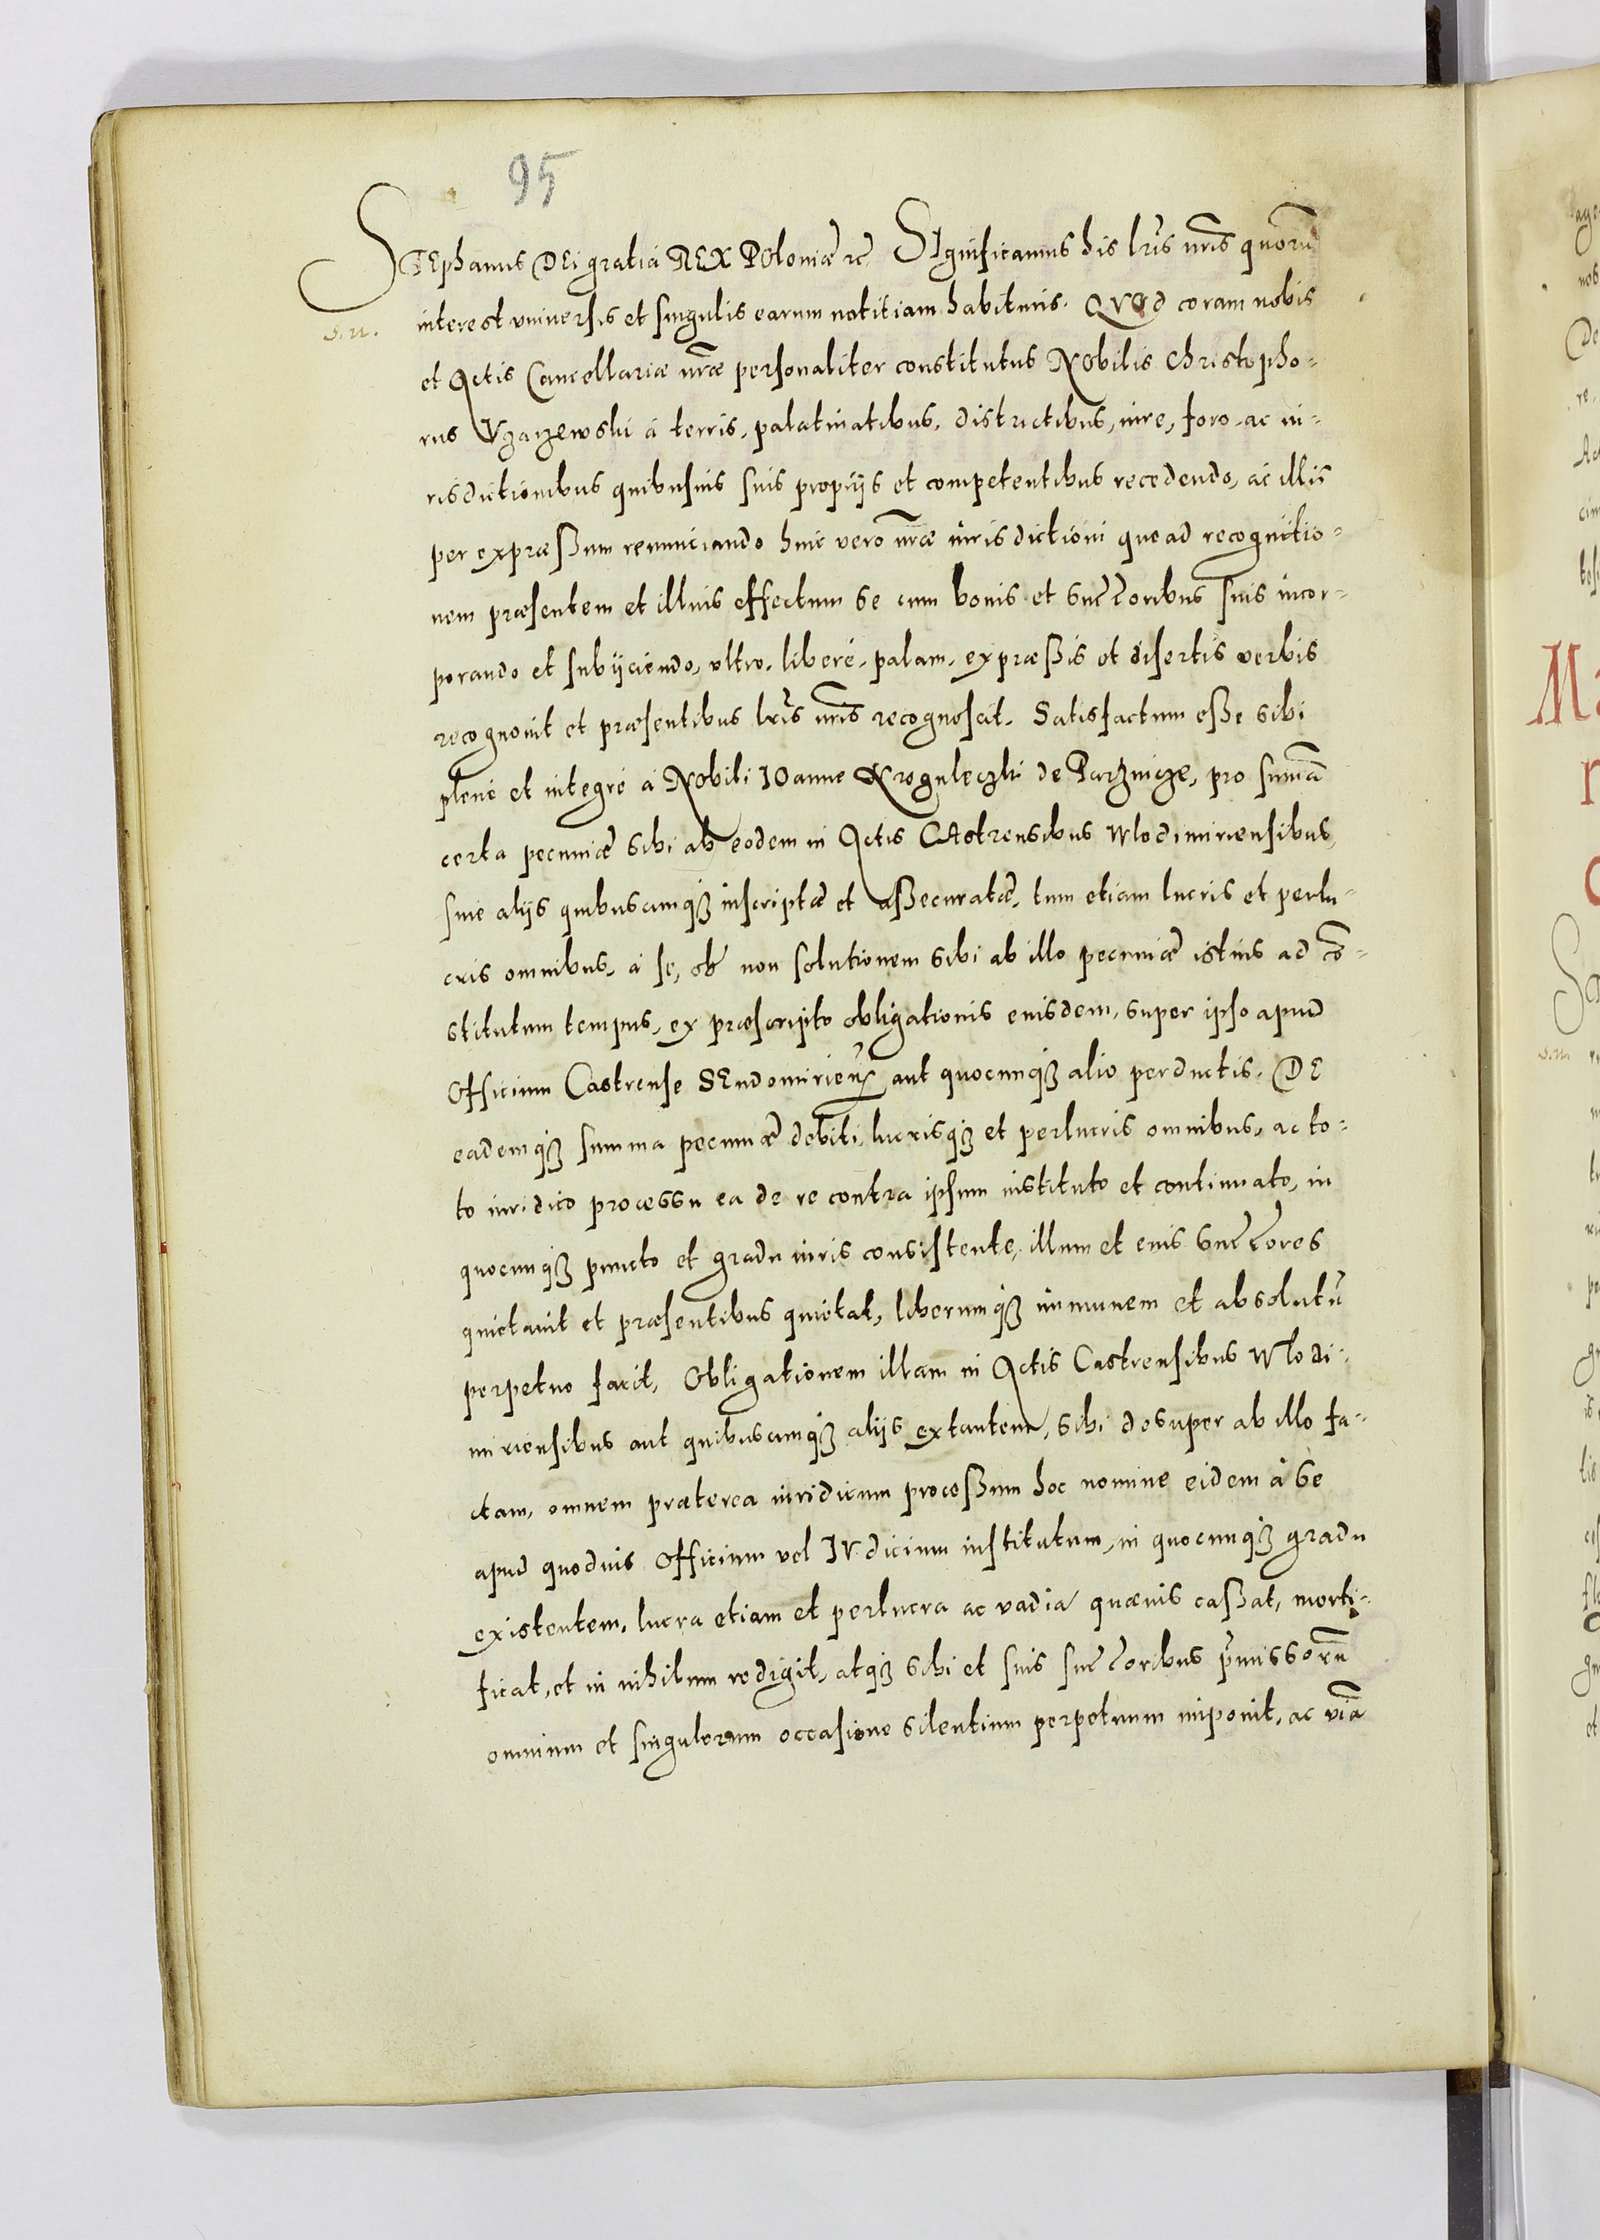 95
STEphanus DEi gratia REX POloniæ etc̃ SIgnificamus his lr̃is nr̃is quorũ
interest vniuersis et singulis earum notitiam habituris. QVOd coram nobis
S. N.
et Actis Cancellariæ nr̃æ personaliter constitutus NObilis Christopho-
rus Vzarzewski à terris, palatinatibus, districtibus, iure, foro, ac iu-
risdictionibus quibusuis suis proprijs et competentibus recedendo, ac illis
per expræssum renunciando huic vero nr̃æ iurisdictioni quo ad recognitio-
nem præsentem et illius effectum se cum bonis et succ̃oribus suis incor-
porando et subijciendo, vltro, liberé, palam, expræssis et disertis verbis
recognouit et præsentibus lr̃is nr̃is recognoscit. Satisfactum esse sibi
plené et integré à Nobili IOanne Kroguleczki de Parznicze, pro summa
certa pecuniæ sibi ab eodem in Actis CAstrensibus Wlodimiriensibus,
siue alijs quibuscunqȝ inscriptæ et assecuratæ, tum etiam lucris et perlu-
cris omnibus, à se, ob non solutionem sibi ab illo pecuniæ istius ad cõ-
stitutum tempus, ex præscripto obligationis eiusdem, super ipso apud
Officium Castrense SEndomirien̄ aut quocunqȝ alio perductis. DE
eademqȝ summa pecuniæ debiti, lucrisqȝ et perlucris omnibus, ac to-
to iuridico processu ea de re contra ipsum instituto et continuato, in
quocunqȝ puncto et gradu iuris consistente, illum et eius succ̃ores
quietauit et præsentibus quietat, liberumqȝ immunem et absolutũ
perpetuo facit, Obligationem illam in Actis Castrensibus Wlodi-
miriensibus aut quibuscunqȝ alijs extantem, sibi desuper ab illo fa-
ctam, omnem præterea iuridicum processum hoc nomine eidem à se
apud quoduis Officium vel IVdicium institutum, in quocunqȝ gradu
existentem, lucra etiam et perlucra ac vadia quæuis cassat, morti-
ficat, et in nihilum redigit, atqȝ sibi et suis succ̃oribus p̃missorũ
omnium et singulorum occasione silentium perpetuum imponit, ac viã